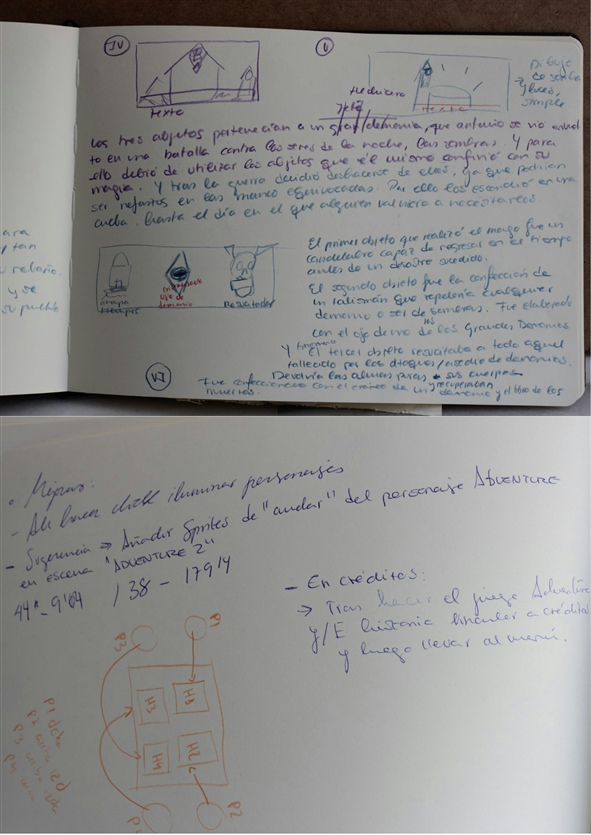 IV
V
texto
texto
Dibujo
simple
Los tres objetos pertenecian a un gran
que antaño se vio
to en una batalla contra los seres de la noche, las sombras. Y para
ello debió de utilizar los objetos que él mismo confinó con su
magia. Y tras la guerra decidió deshacerse de ellos, ya que podrían
ser nefastos en las manos equivocadas. Por ello los escondió en una
cueva. hasta el día en el que alguien volviera a necesitarlos
ara
ptan
rebaño.
y se
su pueblo
ojo de
demonio
Resucitador
El primer objeto que realizó el mago fue un
candelabro capaz de regresar en el tiempo
antes de un desastre sucedido.
El segundo objeto fue la confección de
un talismán que repelería cualquier
demonio o ser de sombras. Fue elaborado
con el ojo de uno de los Grandes Demonios
Y El tercer objeto resucitaba a todo aquel
fallecido por los ataques de demonios.
Devolvía las almas puras a sus cuerpos
VI
Fue confeccionado con el cráneo de un demonio y el libro de los
muertos.
y recuperaban
- Mejoras:
- Al hacer click iluminar personajes
- Sugerencia → Añadir Sprites de "andar" del personaje ADVENTURE
en escena "ADVENTURE 2"
- En créditos:
→ Tras hacer el juego Adventure
y/E historia vincular a créditos
y luego llevar al menú.
P3
P1
H3
H1
H4
H2
P2
P1
P2
P3
P4